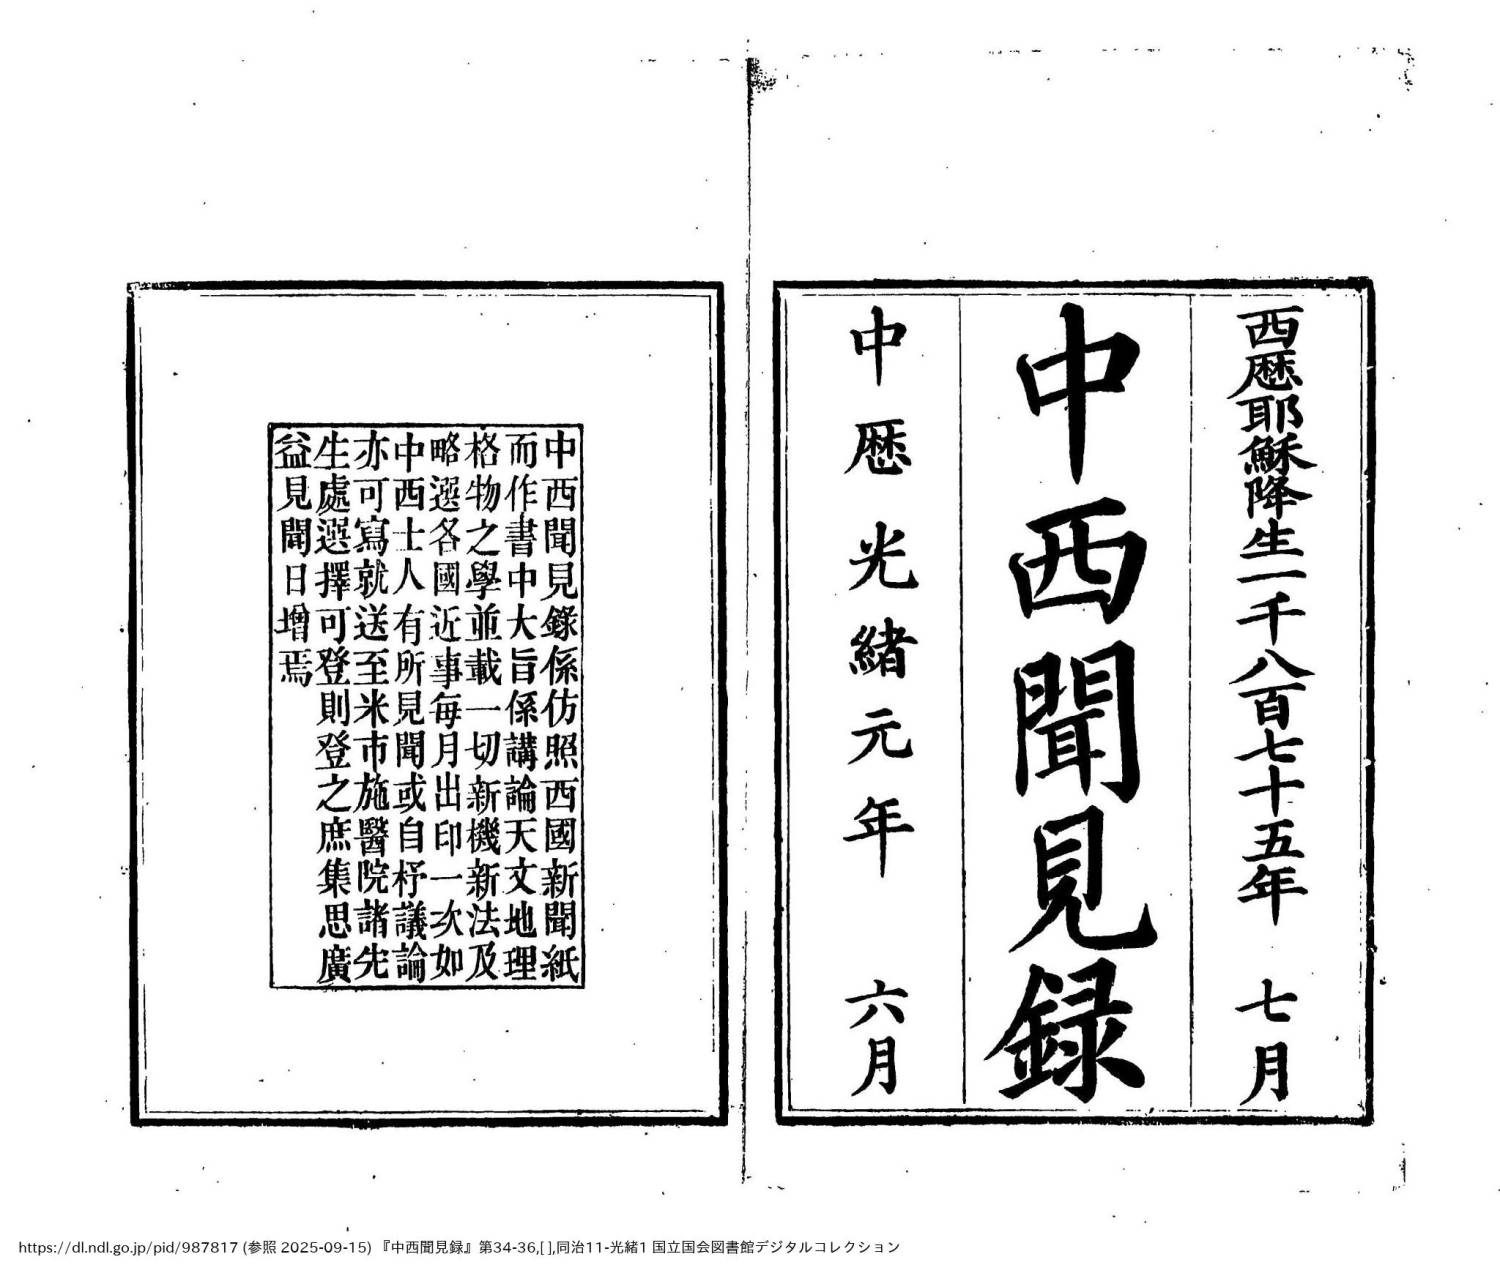 西歷耶穌降生一千八百七十五年 七月
中西聞見録
中歷光緒元年 六月
中西聞見錄係仿照西國新聞紙
而作書中大旨係講論天文地理
格物之學並載一切新機新法及
略選各國近事每月出印一次如
中西士人有所見聞或自杼議論
亦可寫就送至米市施醫院諸先
生處選擇可登則登之庶集思廣
益見聞日增焉
https://dl.ndl.go.jp/pid/987817 (参照 2025-09-15) 『中西聞見録』第34-36,[ ],同治11-光緒1 国立国会図書館デジタルコレクション